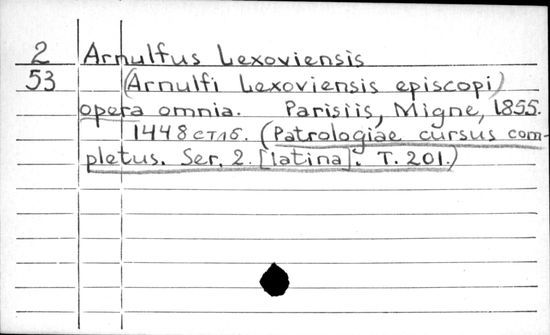 2 Arnulfus Lexoviensis
53 (Arnulfi Lexoviensis episcopi)
opera omnia. Parisiis, Migne, 1855.
1448 стлб. (Patrologiae cursus com-
pletus. Ser. 2. [latina]. T. 201.)